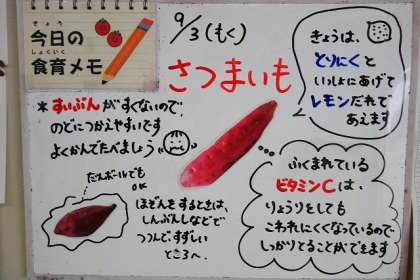 きょう
今日の
しょくいく
食育メモ
9/3(もく)
さつまいも
きょうは、
とりにくと
いっしょにあげて
レモンだれで
あえます
*すいぶんがすくないので、
のどにつかえやすいです
よくかんでたべましょう
だんボールでも
OK
ほぞんをするときは、
しんぶんしなどで
つつんで、すずしい
ところへ。
ふくまれている
ビタミンCは、
りょうりをしても
こわれにくくなっているので
しっかりとることができます